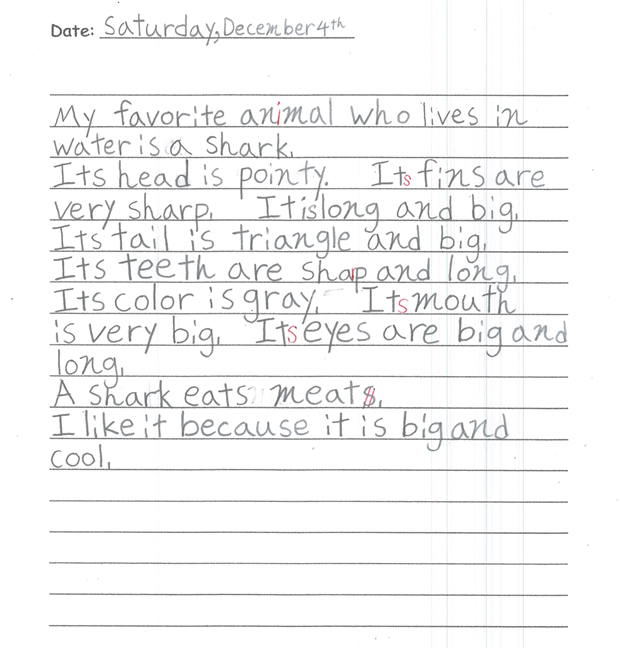 Date: Saturday, December 4th
My favorite animal who lives in
water is a shark.
Its head is pointy. Its fins are
very sharp. It is long and big.
Its tail is triangle and big.
Its teeth are shap and long.
Its color is gray. Its mouth
is very big. Its eyes are big and
long.
A shark eats meats.
I like it because it is big and
cool.